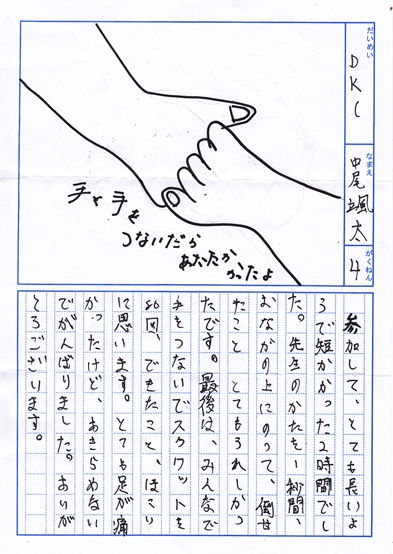 だいめい
DKC
なまえ
中尾颯太
がくねん
4
手と手を
つないだら
あたたか
かったよ
参加して、とても長いよ
うで短かかった2時間でし
た。先生のかたを1秒間、
おなかの上にのって、倒せ
たこと とてもうれしかっ
たです。最後は、みんなで
手をつないでスクワットを
50回、できたこと、ほこり
に思います。とても足が痛
かったけど、あきらめない
でがんばりました。ありが
とうございます。